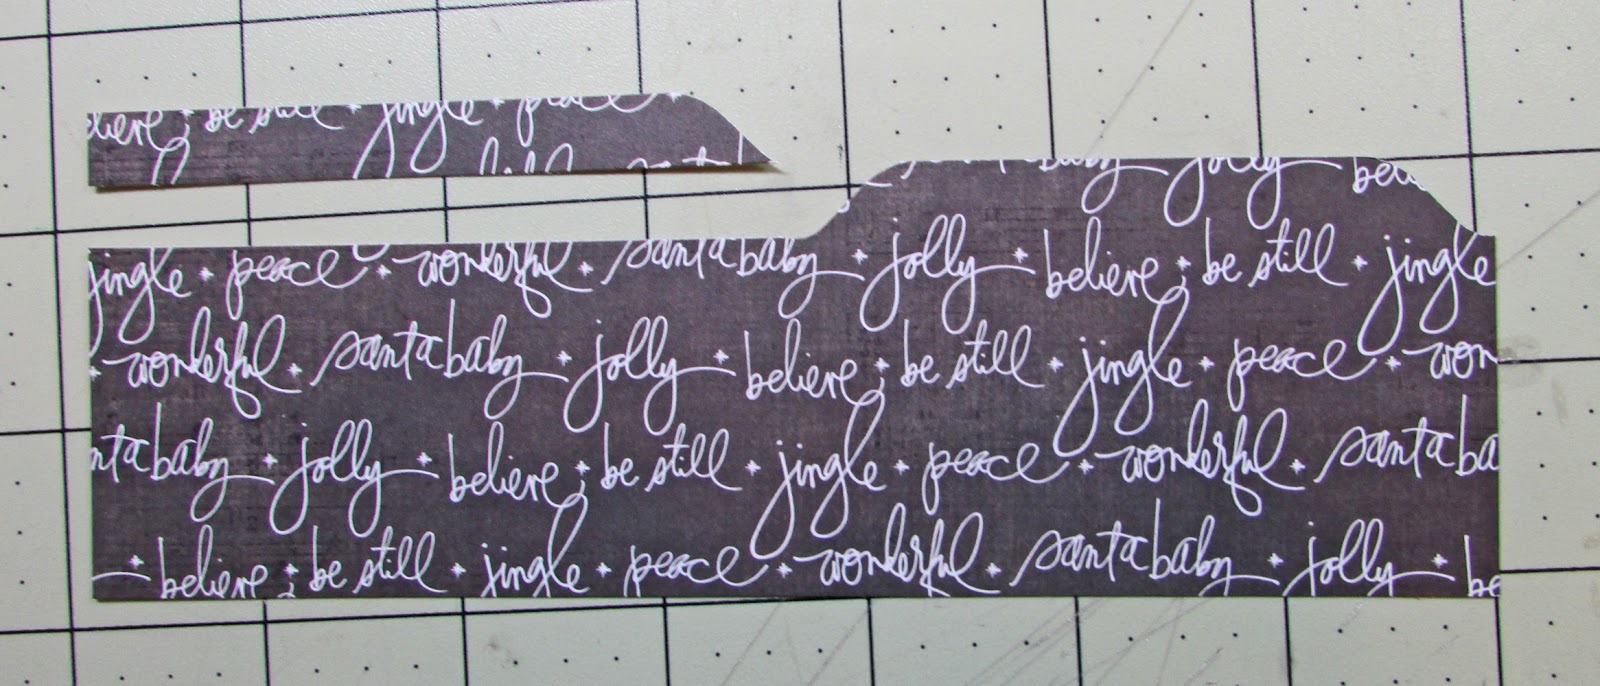 elieve be still jingle peace
baby jolly
jingle peace wonderful santa baby jolly believe be still jingle
wonderful santa baby jolly believe be still jingle peace won
nta baby jolly believe be still jingle peace wonderful santa ba
believe be still jingle peace wonderful santa baby jolly be